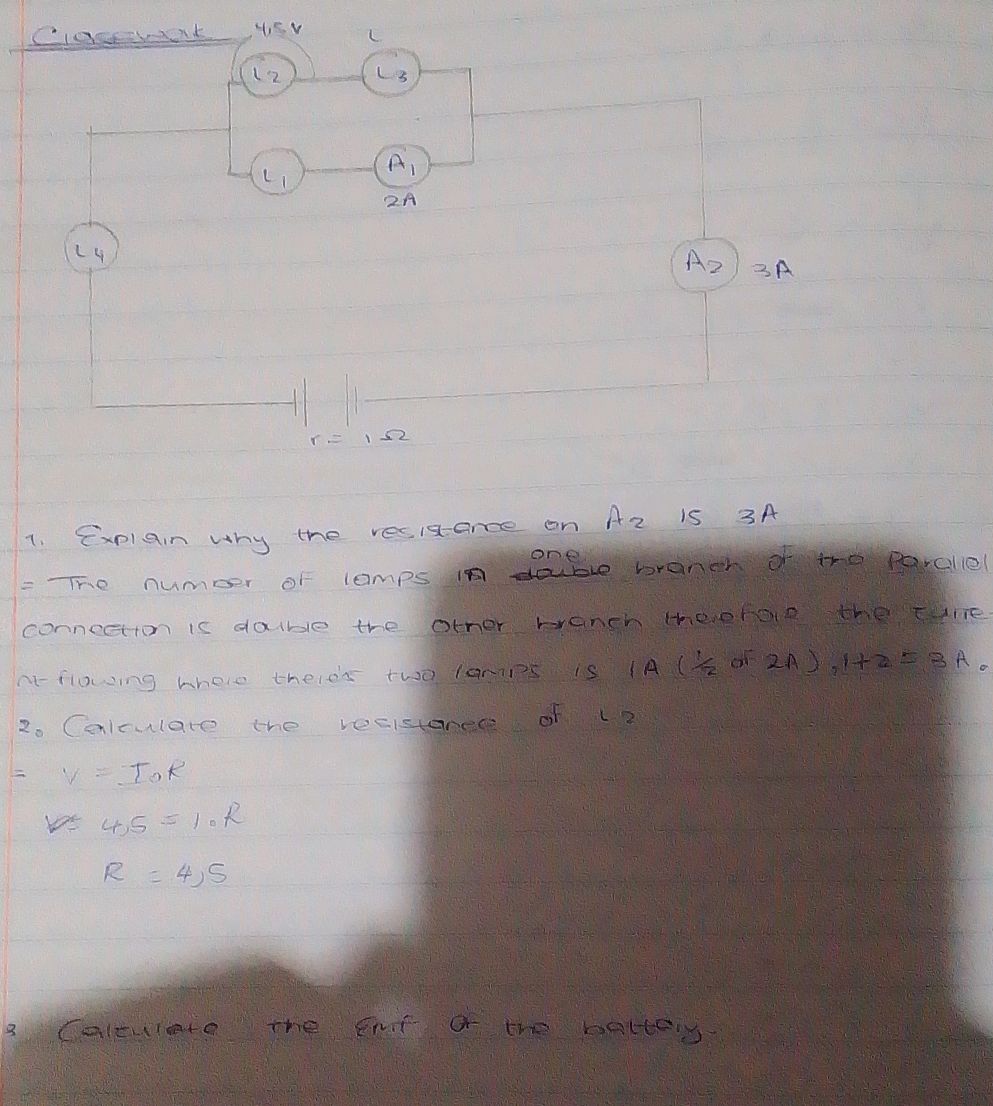 Classwork
4,5 V L
L2 L3
L1 A1
2A
L4
A2 3A
r = 1 Ω
1. Explain why the resistance on A2 is 3A
one
= The number of lamps in double branch of the parallel
connection is double the other branch therefore the curre-
nt flowing where there's two lamps is 1A (½ of 2A), 1+2 = 3A.
2. Calculate the resistance of L2
= V = I.R
V= 4,5 = 1.R
R = 4,5
3 Calculate the Emf of the battery.